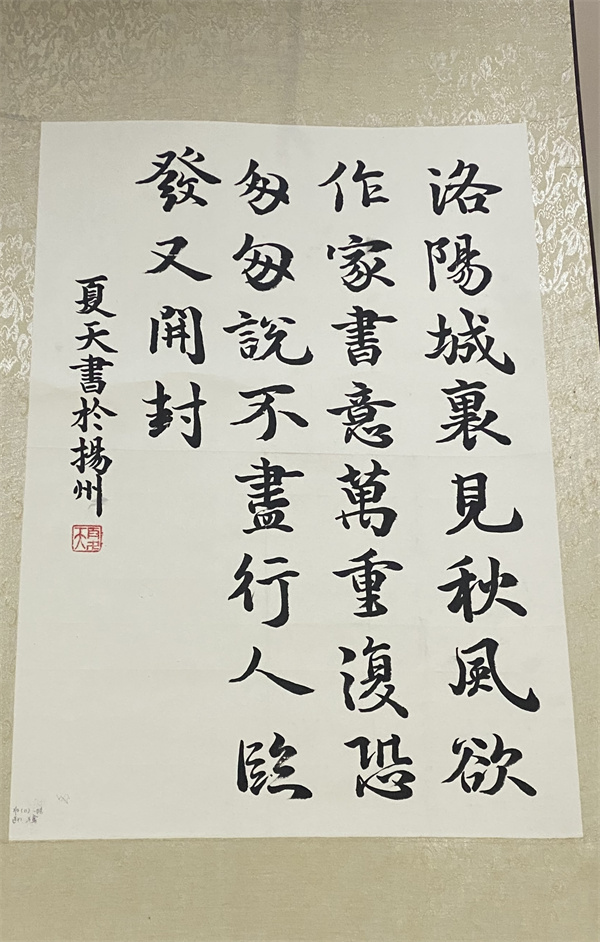 洛陽城裏見秋風欲
作家書意萬重復恐
匆匆說不盡行人臨
發又開封
夏天書於揚州